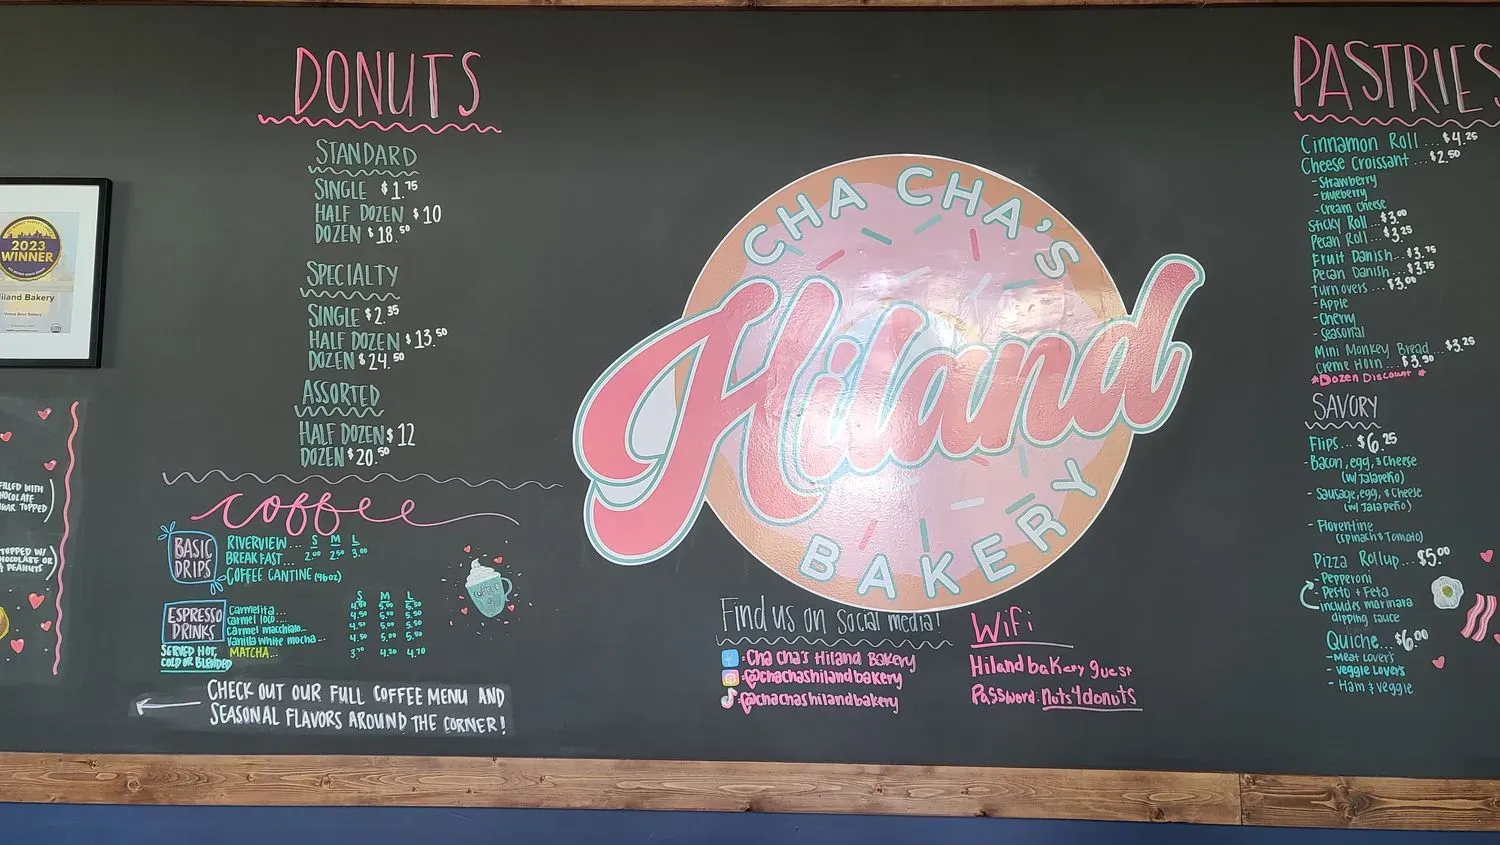 2023
WINNER
iland Bakery
Voted Best Bakery
FILLED WITH
TOPPED W/
DONUTS
STANDARD
SINGLE $1.75
HALF DOZEN $10
DOZEN $18.50
SPECIALTY
SINGLE $2.35
HALF DOZEN $13.50
DOZEN $24.50
ASSORTED
HALF DOZEN $12
DOZEN $20.50
coffee
BASIC
DRIPS
S M L
RIVERVIEW... 2.00 2.50 3.00
BREAKFAST...
COFFEE CANTINE (96oz)
ESPRESSO
DRINKS
SERVED HOT,
COLD OR BLENDED
S M L
Carmelita... 4.50 5.00 5.50
Carmel loco... 4.50 5.00 5.50
Carmel macchiato... 4.50 5.00 5.50
Vanilla White mocha... 4.50 5.00 5.50
MATCHA... 3.70 4.20 4.70
CHECK OUT OUR FULL COFFEE MENU AND
SEASONAL FLAVORS AROUND THE CORNER!
CHA CHA'S
Hiland
BAKERY
Find us on Social media!
Cha Cha's Hiland Bakery
@chachashilandbakery
@chachashilandbakery
WiFi
Hilandbakery guest
Password: nuts4donuts
PASTRIES
Cinnamon Roll ... $4.25
Cheese Croissant ... $2.50
- Strawberry
- blueberry
- Cream Cheese
Sticky Roll ... $3.00
Pecan Roll ... $3.25
Fruit Danish ... $3.75
Pecan Danish ... $3.75
Turnovers ... $3.00
- Apple
- Cherry
- Seasonal
Mini Monkey Bread ... $3.25
Creme Horn ... $3.90
*Dozen Discount *
SAVORY
Flips... $6.25
- Bacon, egg, & Cheese
(w/ Jalapeño)
- Sausage, egg, & Cheese
(w/ Jalapeño)
- Florentine
(Spinach & Tomato)
Pizza Rollup... $5.00
- Pepperoni
- Pesto + Feta
includes marinara
dipping sauce
Quiche... $6.00
- Meat Lover's
- Veggie Lover's
- Ham & Veggie